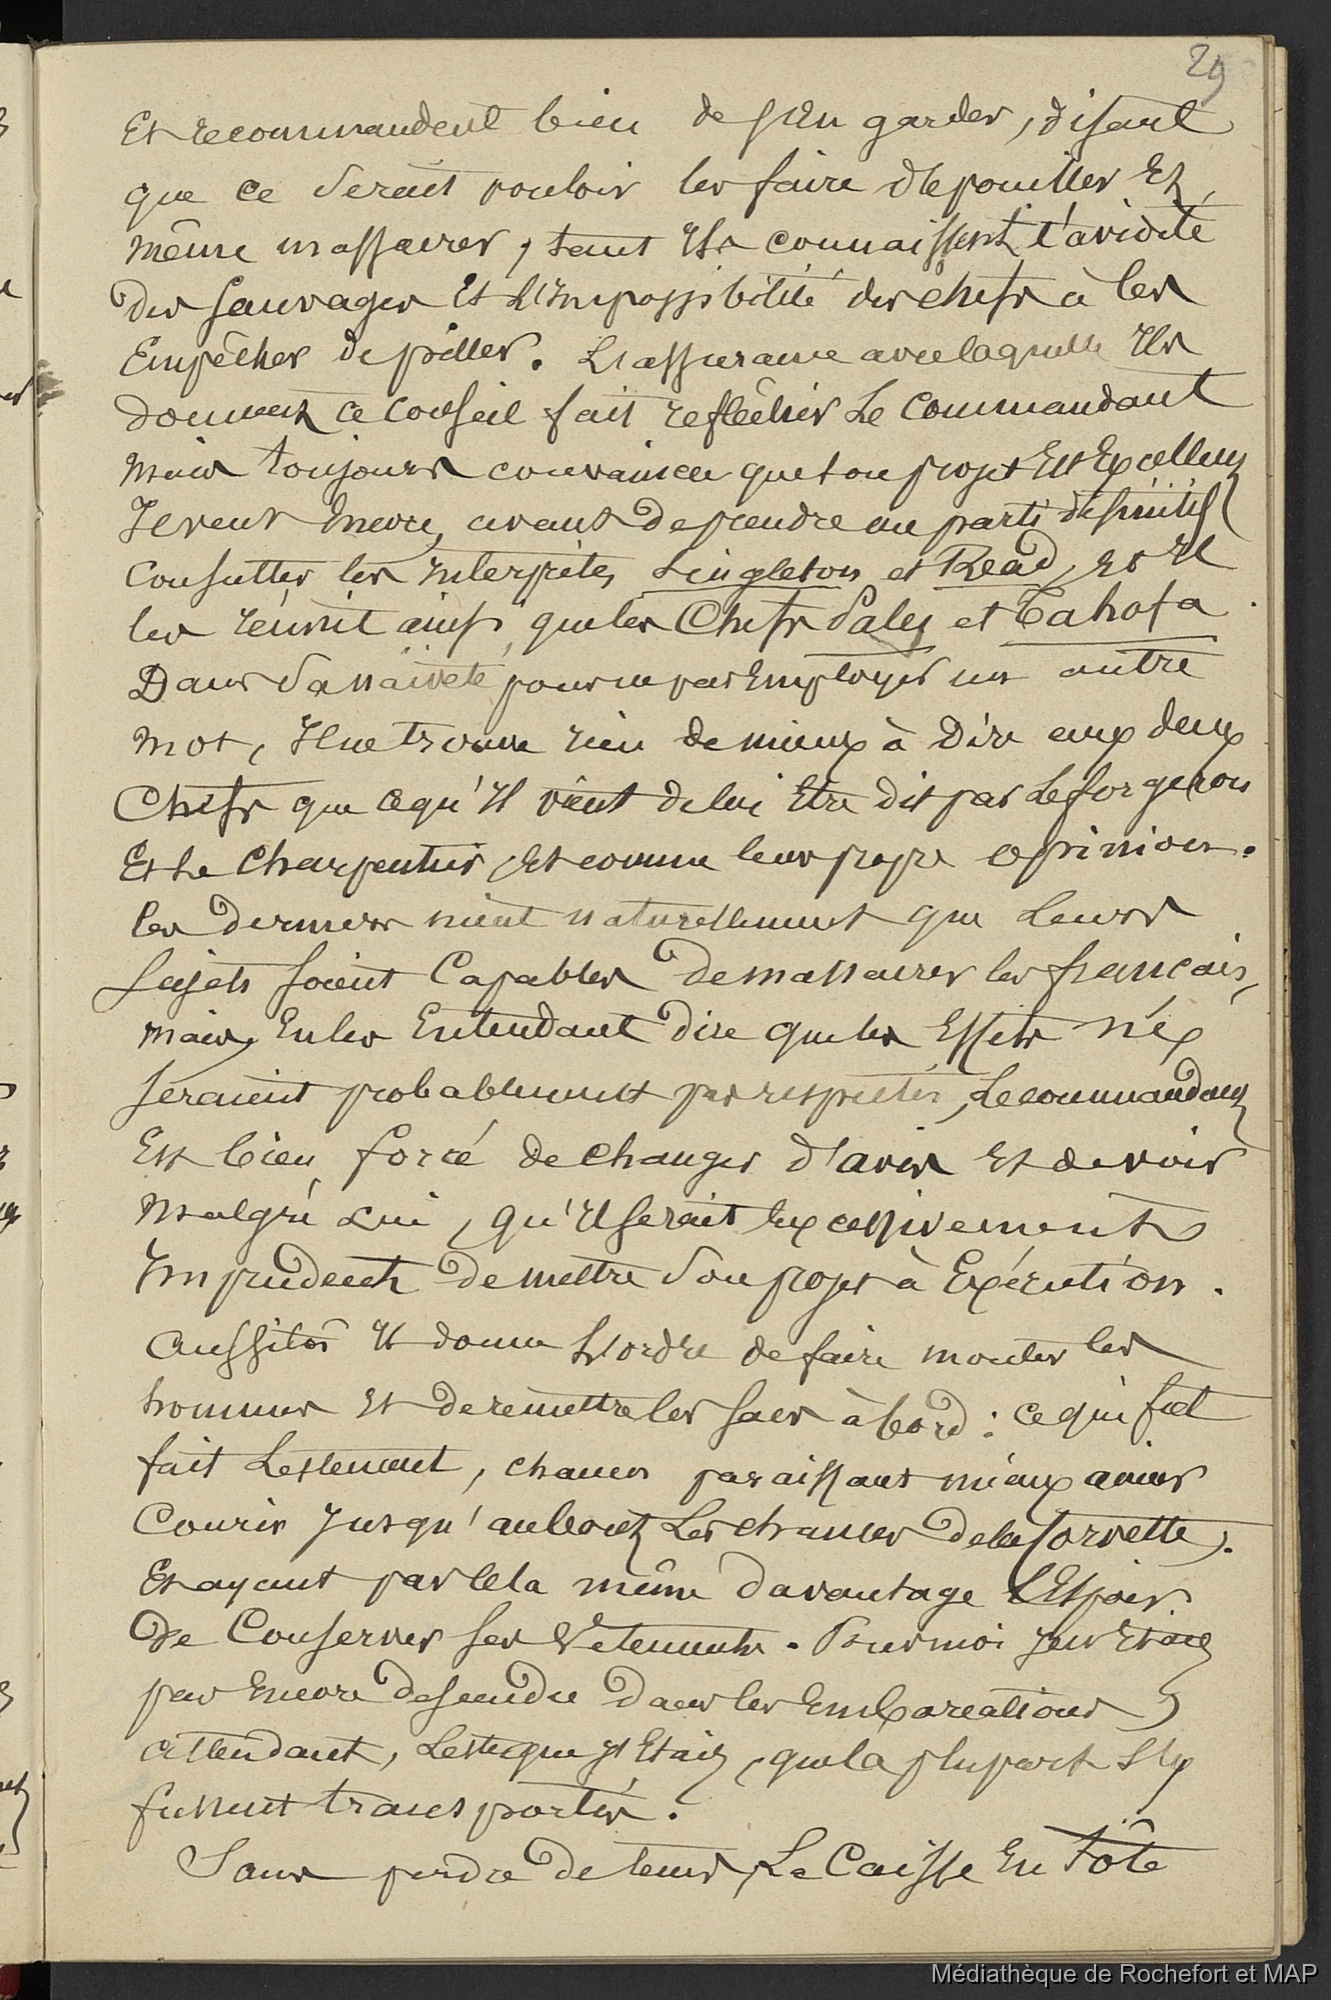 29
Et recommandent bien de s'En garder, disant
que ce serait vouloir les faire dépouiller Et
même massacrer, tant Ils connaissent l'avidité
des sauvages Et L'Impossibilité des chefs à les
Empêcher de piller. L'assurance avec laquelle Ils
donnent ce conseil fait refléchir Le Commandant
mais toujours convaincu que son projet Est Excellent
Il veut Encore, avant de prendre un parti définitif
Consulter les Interprètes Singleton et Read, Et Il
les réunit ainsi que les Chefs Palu et Tahofa.
Dans sa naïveté pour ne pas Employer un autre
mot, Il ne trouve rien de mieux à Dire aux deux
Chefs que ce qu'Il vient de lui Etre dit par Le forgeron
Et Le Charpentier, Et comme leur propre opinion.
les derniers nient naturellement que Leurs
sujets soient Capables de massacrer les français,
mais, En les Entendant dire que les Effets n'ex
seraient probablement pas respectés, Le commandant
Est bien forcé de changer d'avis Et de voir
malgré Lui, qu'Il serait Excessivement
Imprudent de mettre son projet à Exécution.
Aussitôt Il donne L'ordre de faire monter les
hommes Et de remettre les sacs à bord : ce qui fut
fait Lestement, chacun paraissant mieux aimer
Courir Jusqu'au bout Les chances de la Corvette.
Et ayant par cela même davantage L'Espoir
De Conserver ses Vêtements. Pour moi Je n'Etais
pas Encore descendu dans les Embarcations,
attendant, Leste que j'Etais, que la plupart s'y
fussent transportés.
Sans perdre de temps, La Caisse En tôle
Médiathèque de Rochefort et MAP